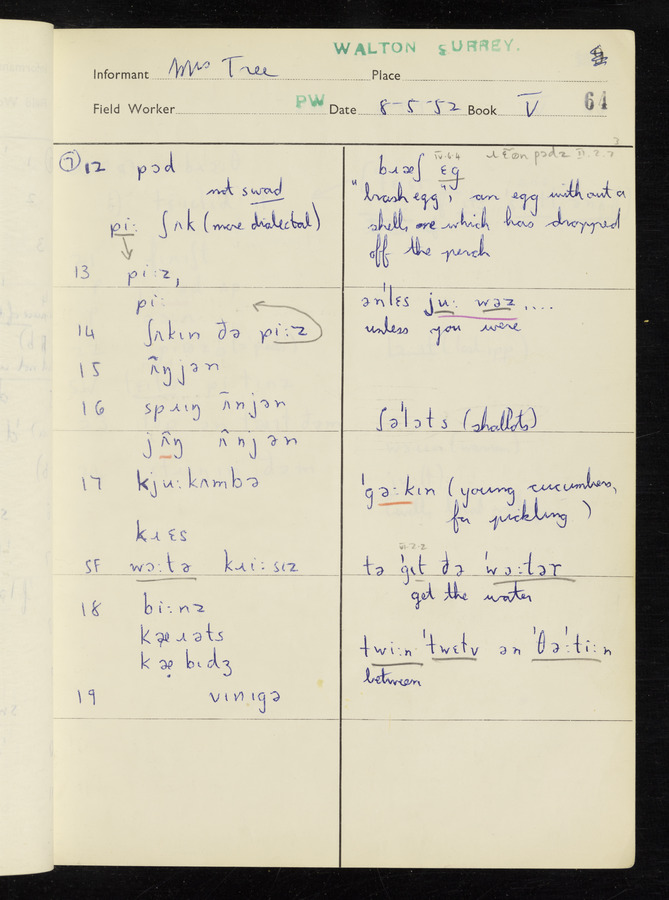 WALTON SURREY.
Informant Mrs Tree Place
Field Worker PW Date 8-5-52 Book V 64
⑦ 12 pɔd
not swad
pi: ʃʌk (more dialectal)
13 pi:z,
pi:
14 ʃʌkɪn ðə pi:z
15 ʌ̃njən
16 spɹɪŋ ʌ̃njən
jʌ̃ŋ ʌ̃njən
17 kju:kʌmbə
kɹɛs
SF wɔ:tə kɹi:sɪz
18 bi:nz
kæɹəts
kæbɪdʒ
19 vɪnɪgə
IV.6.4 pɔdz II.2.2
bɹæʃ ɛg
"brash egg", an egg without a
shell, or which has dropped
off the perch
ən'lɛs ju: wəz ....
unless you were
ʃə'lɔts (shallots)
'gə:kɪn (young cucumbers,
for pickling)
tə 'gɪt ðə 'wɔ:tər
get the water
twi:n 'twɛtv ən 'θə:'ti:n
between